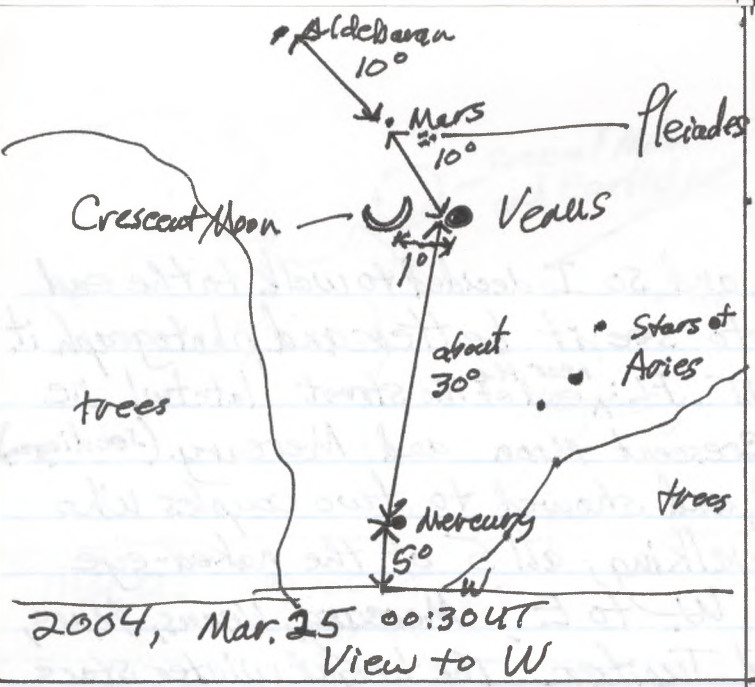 Aldebaran
10°
Mars
10°
Pleiades
Crescent Moon
Venus
1°
about
30°
Stars of
Aries
trees
trees
Mercury
5°
W
2004, Mar. 25 00:30 UT
View to W